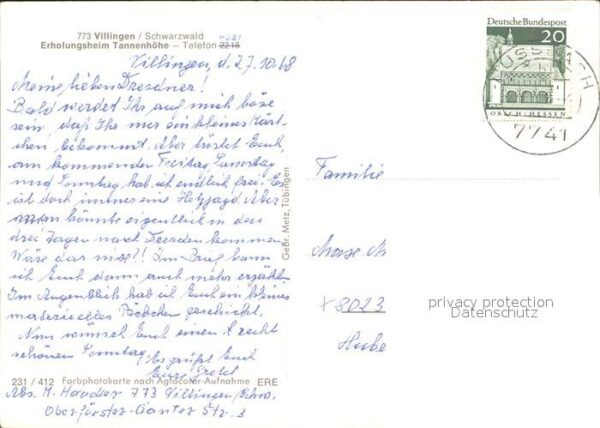 773 Villingen / Schwarzwald
Erholungsheim Tannenhöhe – Telefon 2218
Deutsche Bundespost
20
LORSCH/HESSEN
7741
Villingen, d. 27.10.68
Meine lieben Dresdner!
Bald werdet Ihr auf mich böse
sein, daß Ihr nur ein kleines Kärt-
chen bekommt. Aber tröstet Euch,
am kommenden Freitag, Samstag
und Sonntag hab ich endlich frei! Es
ist doch immer eine Hetzjagd. Aber
man könnte eigentlich in den
drei Tagen nach Dresden kommen.
Wäre das was?! Im Brief kann
ich Euch dann auch mehr erzähl.
Im Augenblick hab ich Euch ein kleines
materielles Päckchen geschickt.
Nun wünsch Euch einen recht
schönen Sonntag. Es grüßt Euch
Eure Gretel
Familie
X 8023
privacy protection
Datenschutz
Gebr. Metz, Tübingen
231 / 412 Farbphotokarte nach Agfacolor-Aufnahme ERE
Abs. H. Haader 773 Villingen/Schw.
Oberförster-Ganter Str. 3